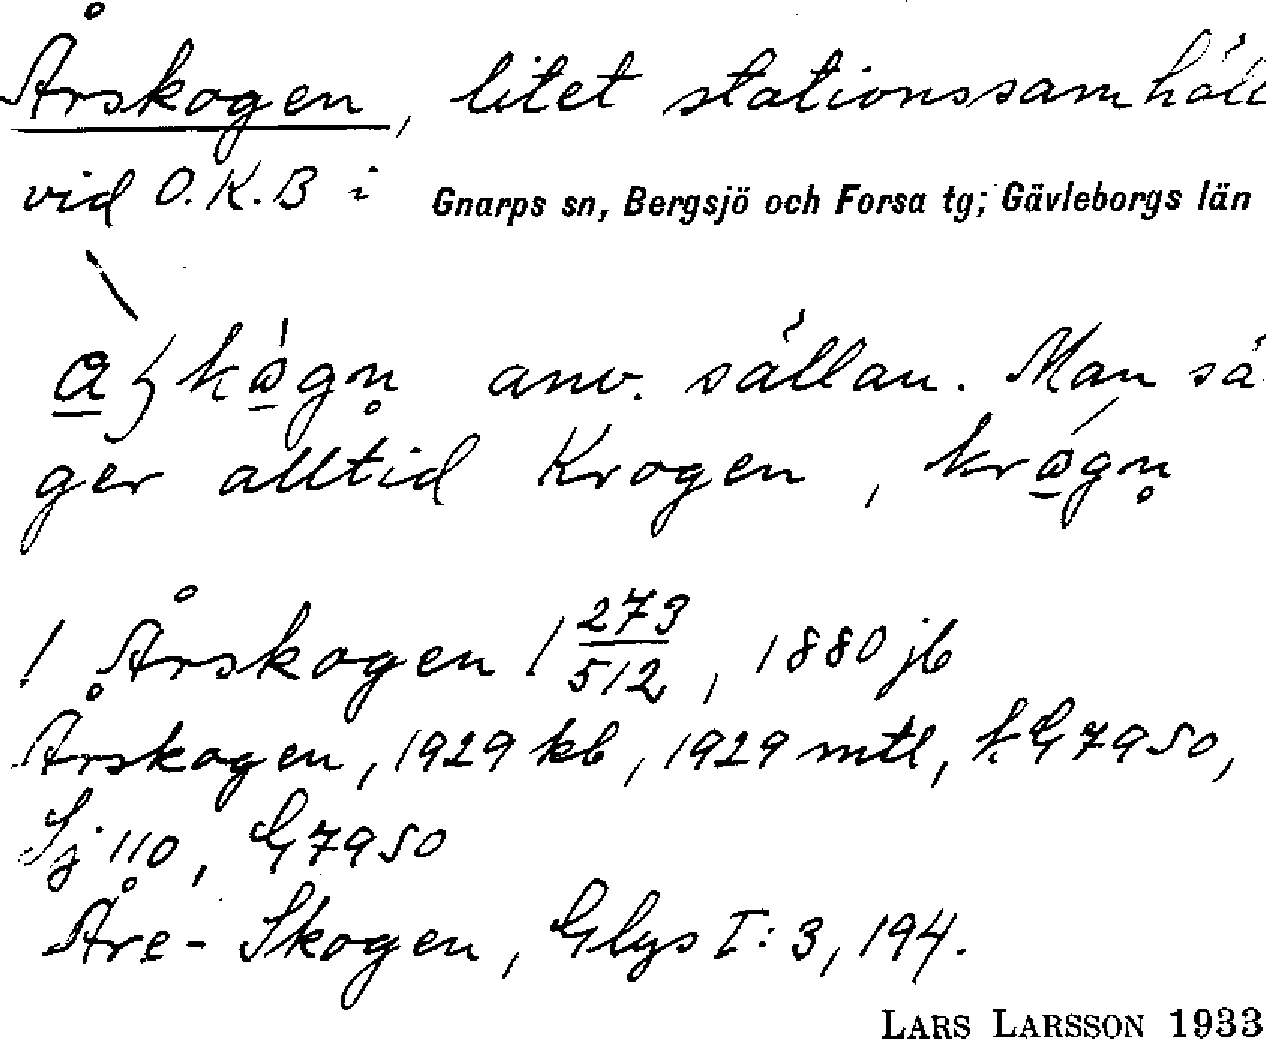 Årskogen, litet stationssamhäll
vid O.K.B i Gnarps sn, Bergsjö och Forsa tg; Gävleborgs län
anv. sällan. Man sä
ger alltid Krogen,
! Årskogen 1 273/512, 1880 jb
Årskogen, 1929 kb, 1929 mtl, kG7950,
Sj 110, G7950
Åre-Skogen, Glys I:3, 194.
LARS LARSSON 1933